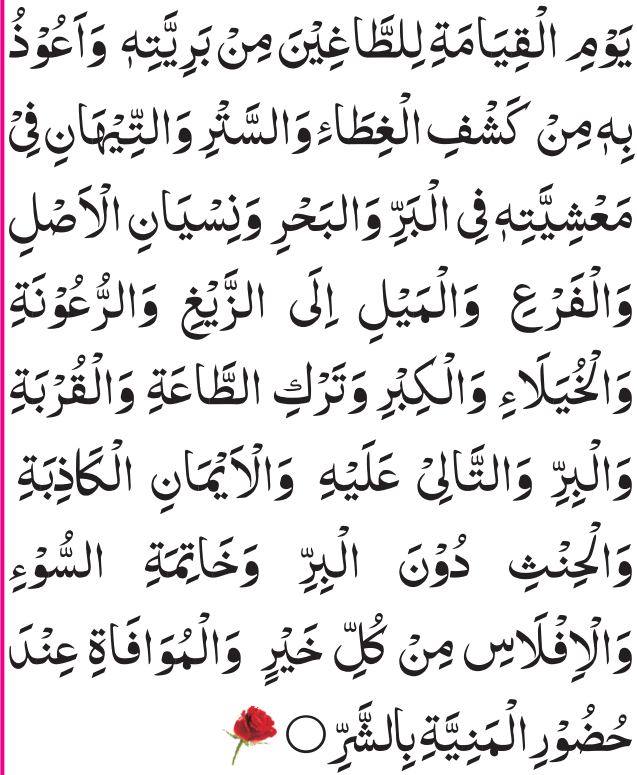 يَوْمِ الْقِيَامَةِ لِلطَّاغِيْنَ مِنْ بَرِيَّتِهٖ وَاَعُوْذُ
بِهٖ مِنْ كَشْفِ الْغِطَاءِ وَالسَّتْرِ وَالتِّيْهَانِ فِيْ
مَعْشِيَّتِهٖ فِي الْبَرِّ وَالبَحْرِ وَنِسْيَانِ الْاَصْلِ
وَالْفَرْعِ وَالْمَيْلِ اِلَى الزَّيْغِ وَالرُّعُوْنَةِ
وَالْخُيَلَاءِ وَالْكِبْرِ وَتَرْكِ الطَّاعَةِ وَالْقُرْبَةِ
وَالْبِرِّ وَالتَّالِيْ عَلَيْهِ وَالْاَيْمَانِ الْكَاذِبَةِ
وَالْحِنْثِ دُوْنَ الْبِرِّ وَخَاتِمَةِ السُّوْءِ
وَالْاِفْلَاسِ مِنْ كُلِّ خَيْرٍ وَالْمُوَافَاةِ عِنْدَ
حُضُوْرِ الْمَنِيَّةِ بِالشَّرِّ ○